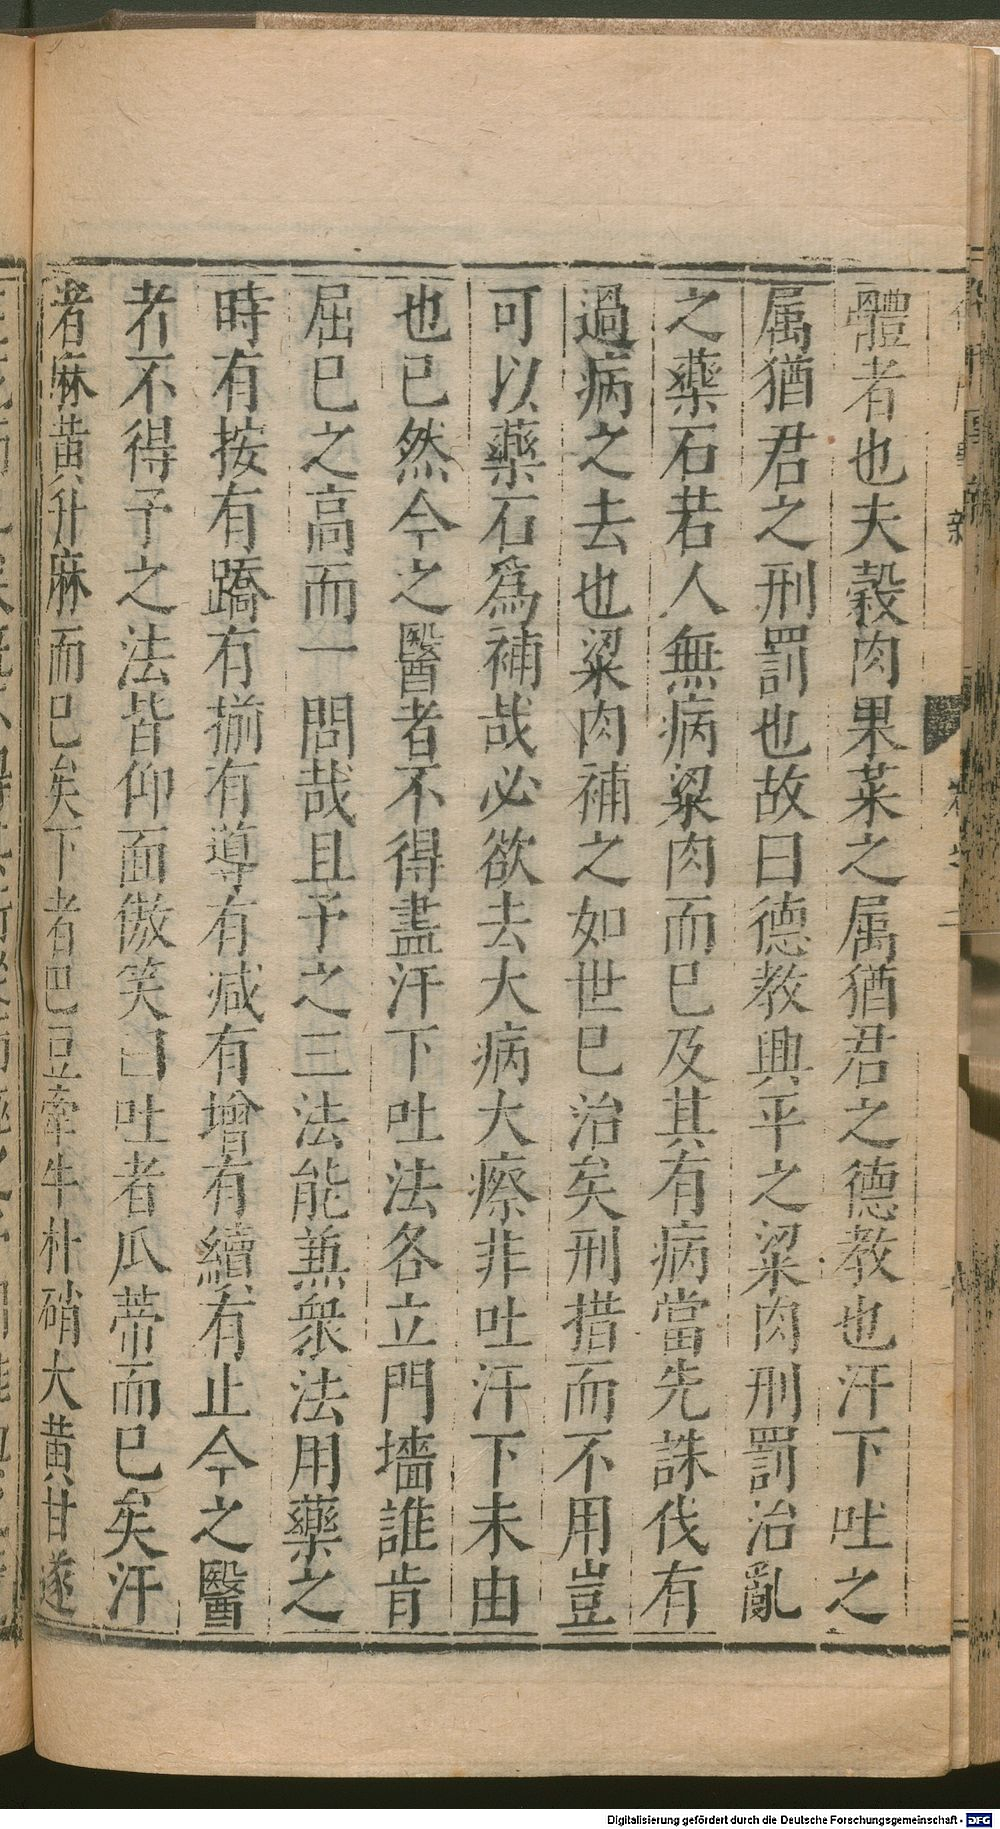 體者也夫穀肉果菜之属猶君之德教也汗下吐之
属猶君之刑罰也故曰德教興平之粱肉刑罰治亂
之藥石若人無病粱肉而已及其有病當先誅伐有
過病之去也粱肉補之如世已治矣刑措而不用豈
可以藥石為補哉必欲去大病大瘵非吐汗下未由
也已然今之醫者不得盡汗下吐法各立門墻誰肯
屈已之高而一問哉且予之三法能兼衆法用藥之
時有按有蹻有揃有導有减有增有續有止今之醫
者不得予之法皆仰面傲笑曰吐者瓜蒂而已矣汗
者麻黄升麻而已矣下者巴豆牽牛朴硝大黄甘遂
Digitalisierung gefördert durch die Deutsche Forschungsgemeinschaft - DFG